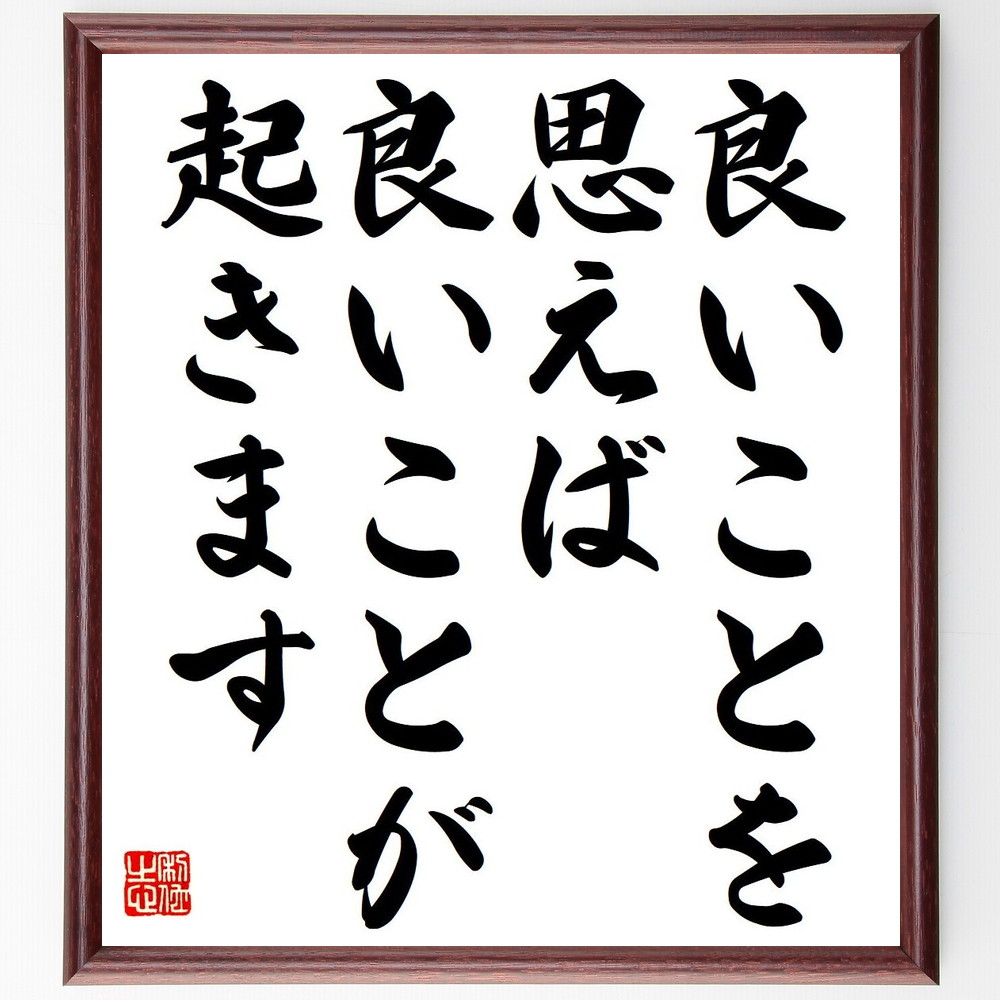 良いことを
思えば
良いことが
起きます